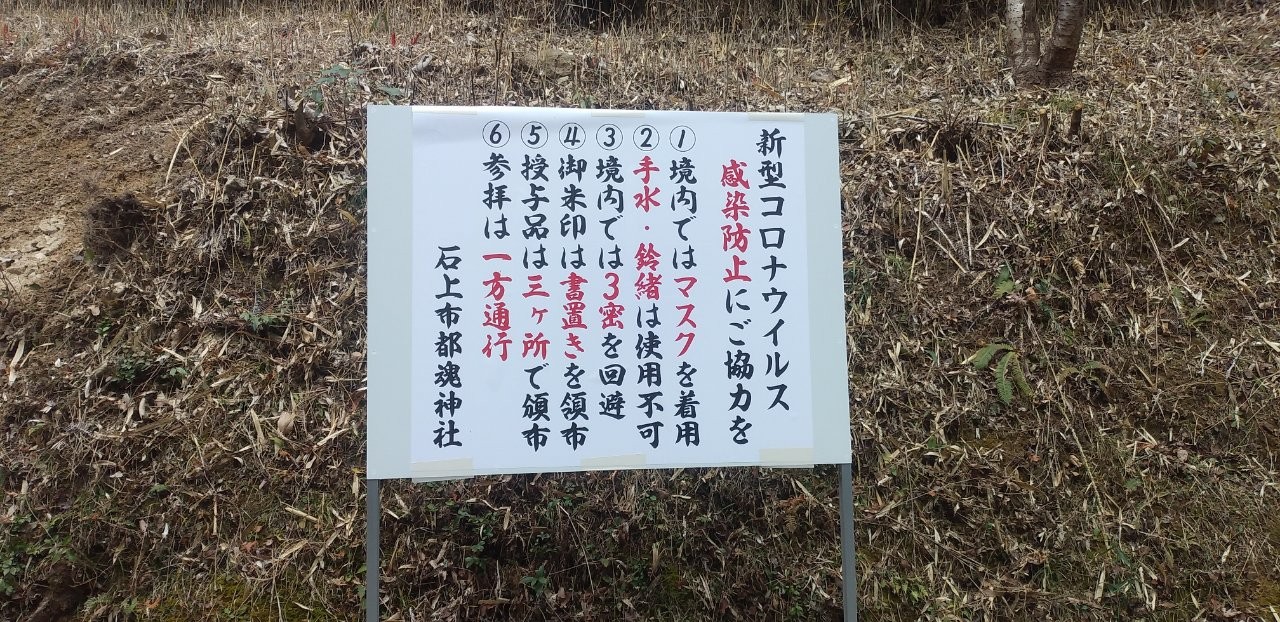 新型コロナウイルス
感染防止にご協力を
①境内ではマスクを着用
②手水・鈴緒は使用不可
③境内では３密を回避
④御朱印は書置きを領布
⑤授与品は三ヶ所で頒布
⑥参拝は一方通行
石上布都魂神社